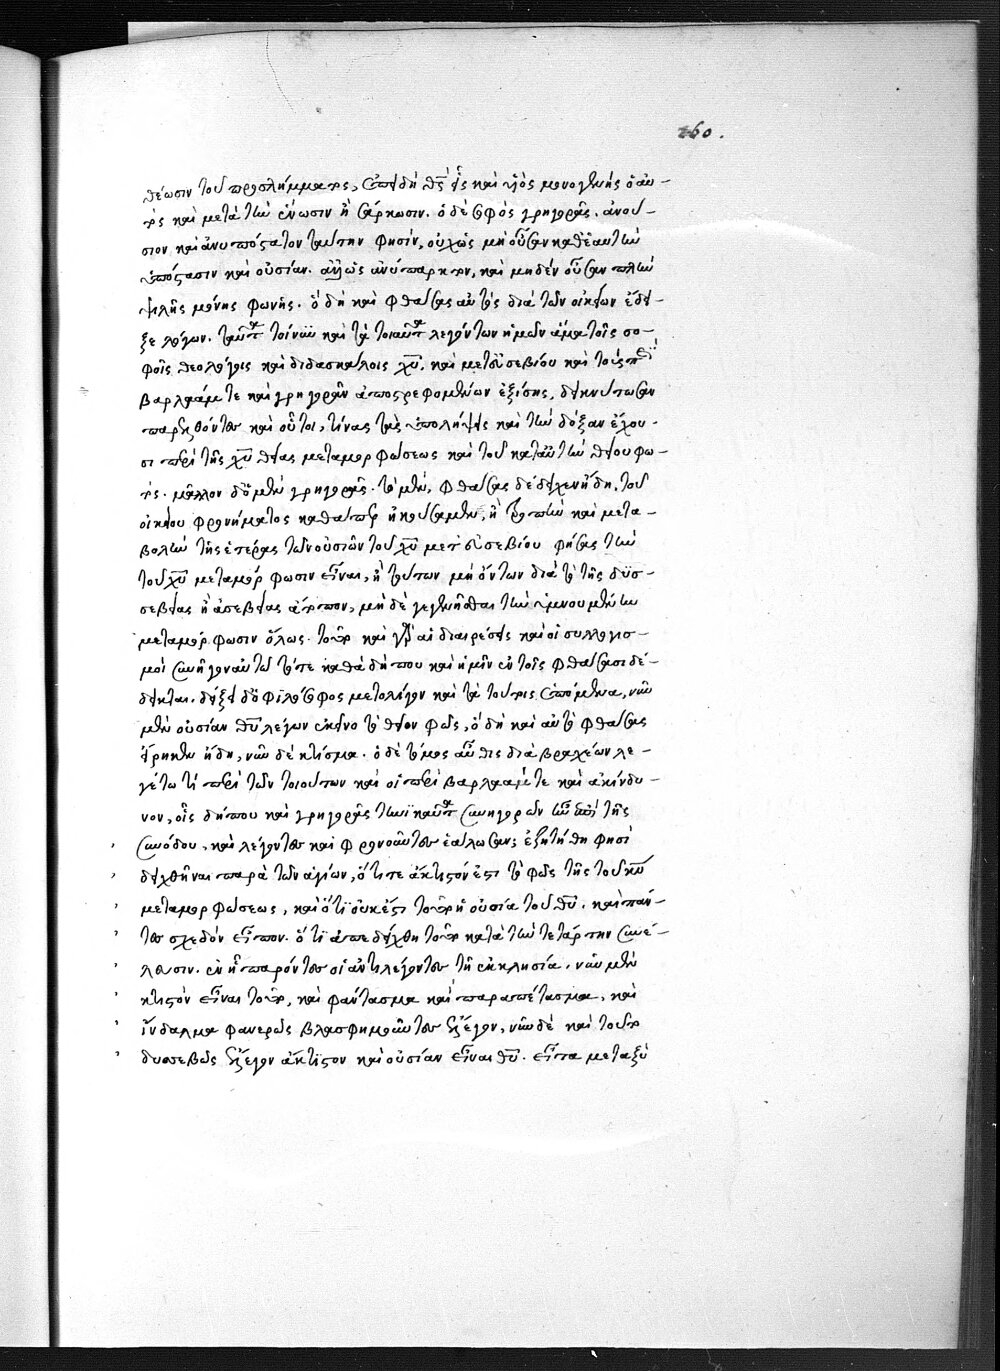 260.
θέωσιν τοῦ προσλήμματος, ἐπειδὴ θς εἷς καὶ υἱὸς μονογενὴς ὁ αὐ-
τὸς καὶ μετὰ τὴν ἕνωσιν ἢ σάρκωσιν. ὁ δὲ σοφὸς γρηγορᾶς. ἀνού-
σιον καὶ ἀνυπόστατον ταύτην φησὶν, οὐχ ὡς μὴ οὖσαν καθ' ἑαυτὴν
ὑπόστασιν καὶ οὐσίαν. ἀλλ' ὡς ἀνύπαρκτον, καὶ μηδὲν οὖσαν πλὴν
ψιλῆς μόνης φωνῆς. ὃ δὴ καὶ φθάσας αὐτὸς διὰ τῶν οἰκείων ἔδει-
ξε λόγων. ταῦτα τοίνυν καὶ τὰ τοιαῦτα λεγόντων ἡμῶν ἅμα τοῖς σο-
φοῖς θεολόγοις καὶ διδασκάλοις χυ. καὶ μετ' εὐσεβίου καὶ τοὺς περὶ
βαρλαάμ τε καὶ γρηγορᾶν ἀποστρεφομένων ἐξίσης, δεικνύτωσαν
παρελθόντες καὶ οὗτοι, τίνας τὰς ὑπολήψεις καὶ τὴν δόξαν ἔχου-
σι περὶ τῆς χυ θείας μεταμορφώσεως καὶ τοῦ κατ' αὐτὴν θείου φω-
τός. μᾶλλον δ' ὁ μὲν γρηγορᾶς. τὸ μὲν, φθάσας δέδειχεν ἤδη, τοῦ
οἰκείου φρονήματος καθάπερ ἠκούσαμεν, ἢ τροπὴν καὶ μετα-
βολὴν τῆς ἑτέρας τῶν οὐσιῶν τοῦ χυ μετ' εὐσεβίου φήσας τὴν
τοῦ χυ μεταμόρφωσιν εἶναι, ἢ τούτων μὴ ὄντων διὰ τὸ τῆς δυσ-
σεβείας ἢ ἀσεβείας ἄτοπον, μηδὲ γεγενῆσθαι τὴν ὑμνουμένην
μεταμόρφωσιν ὅλως. τοῦτο καὶ γὰρ αἱ διαιρέσεις καὶ οἱ συλλογισ-
μοὶ συνῆγον αὐτῷ τότε καθὰ δήπου καὶ ἡμῖν ἐν τοῖς φθάσασι δέ-
δεικται. δείξει δ' ὁ φιλόσοφος μετ' ὀλίγον καὶ τὰ τούτοις ἑπόμενα, νῦν
μὲν οὐσίαν θυ λέγων ἐκεῖνο τὸ θεῖον φῶς, ὃ δὴ καὶ αὐτὸ φθάσας
εἴρηκεν ἤδη, νῦν δὲ κτίσμα. ὁ δὲ τόμος αὖθις διὰ βραχέων λε-
γέτω τί περὶ τῶν τοιούτων καὶ οἱ περὶ βαρλαάμ τε καὶ ἀκίνδυ-
νον, οἷς δήπου καὶ γρηγορᾶς τανῦν κατ' συνηγορῶν ὑπὸ τῆς
συνόδου, καὶ λέγοντες καὶ φρονοῦντες ἑάλωσαν; ἐζητήθη φησὶ
δειχθῆναι παρὰ τῶν ἁγίων, ὅτι τε ἄκτιστόν ἐστι τὸ φῶς τῆς τοῦ κυ
μεταμορφώσεως, καὶ ὅτι οὐκ ἔστι τοῦτο ἡ οὐσία τοῦ θυ. καὶ πάν-
τες σχεδὸν εἶπον. ὅτι ἀπεδείχθη τοῦτο κατὰ τὴν τετάρτην συνέ-
λευσιν. ἐν ᾗ παρόντες οἱ ἀντιλέγοντες τῇ ἐκκλησίᾳ, νῦν μὲν
κτιστὸν εἶναι τοῦτο, καὶ φάντασμα καὶ παραπέτασμα, καὶ
ἴνδαλμα φανερῶς βλασφημοῦντες ἔλεγον, νῦν δὲ καὶ τοῦτο
δυσσεβῶς ἔλεγον ἄκτιστον καὶ οὐσίαν εἶναι θυ. εἶτα μεταξὺ